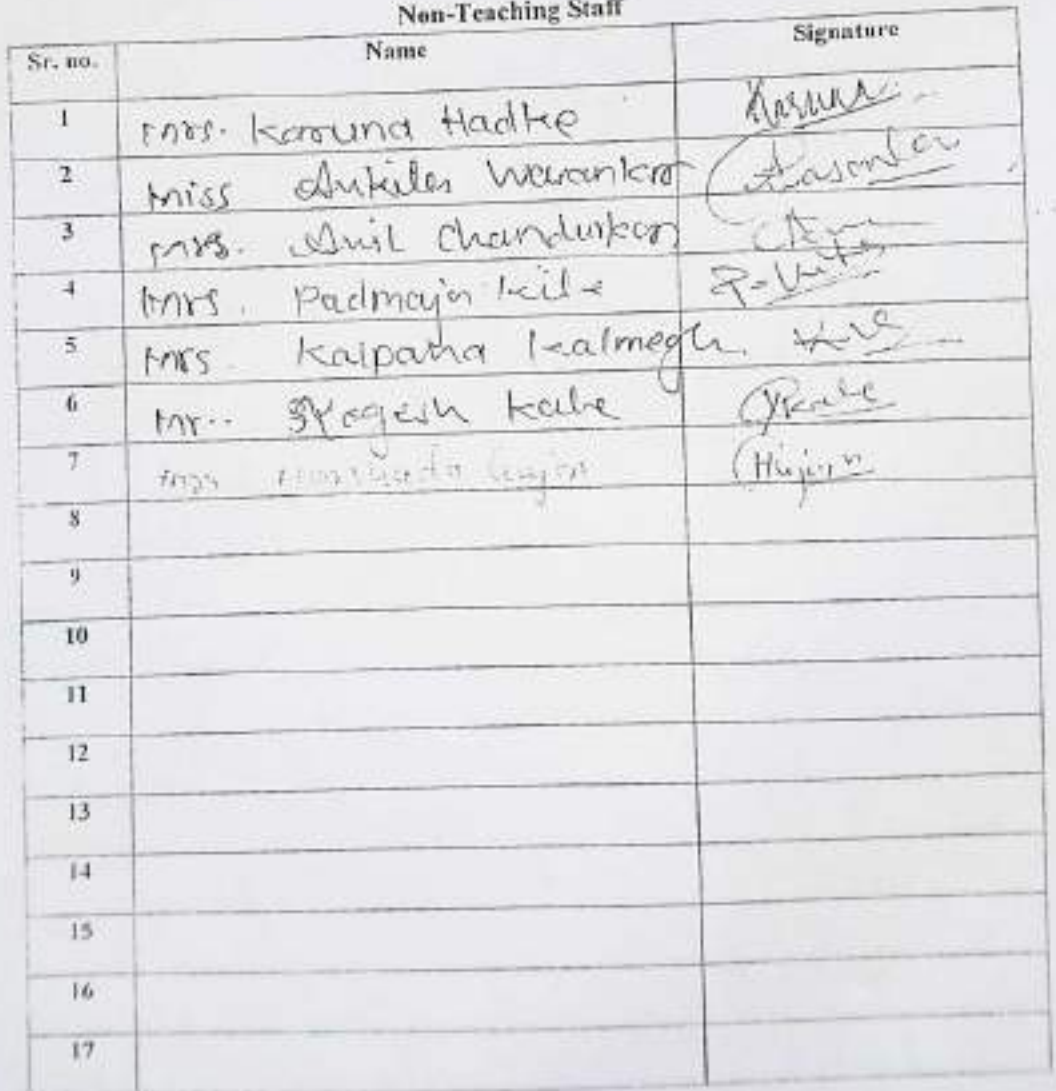 Non-Teaching Staff
Sr. no. Name Signature
1 Mrs. Karuna Hadke Karuna
2 Miss Ankita Warankar
3 Mrs. Anil Chandurkar
4 Mrs. Padmaja
5 Mrs. Kalpana Kalmegh
6 Mr. Yogesh Kale YKale
7
8
9
10
11
12
13
14
15
16
17